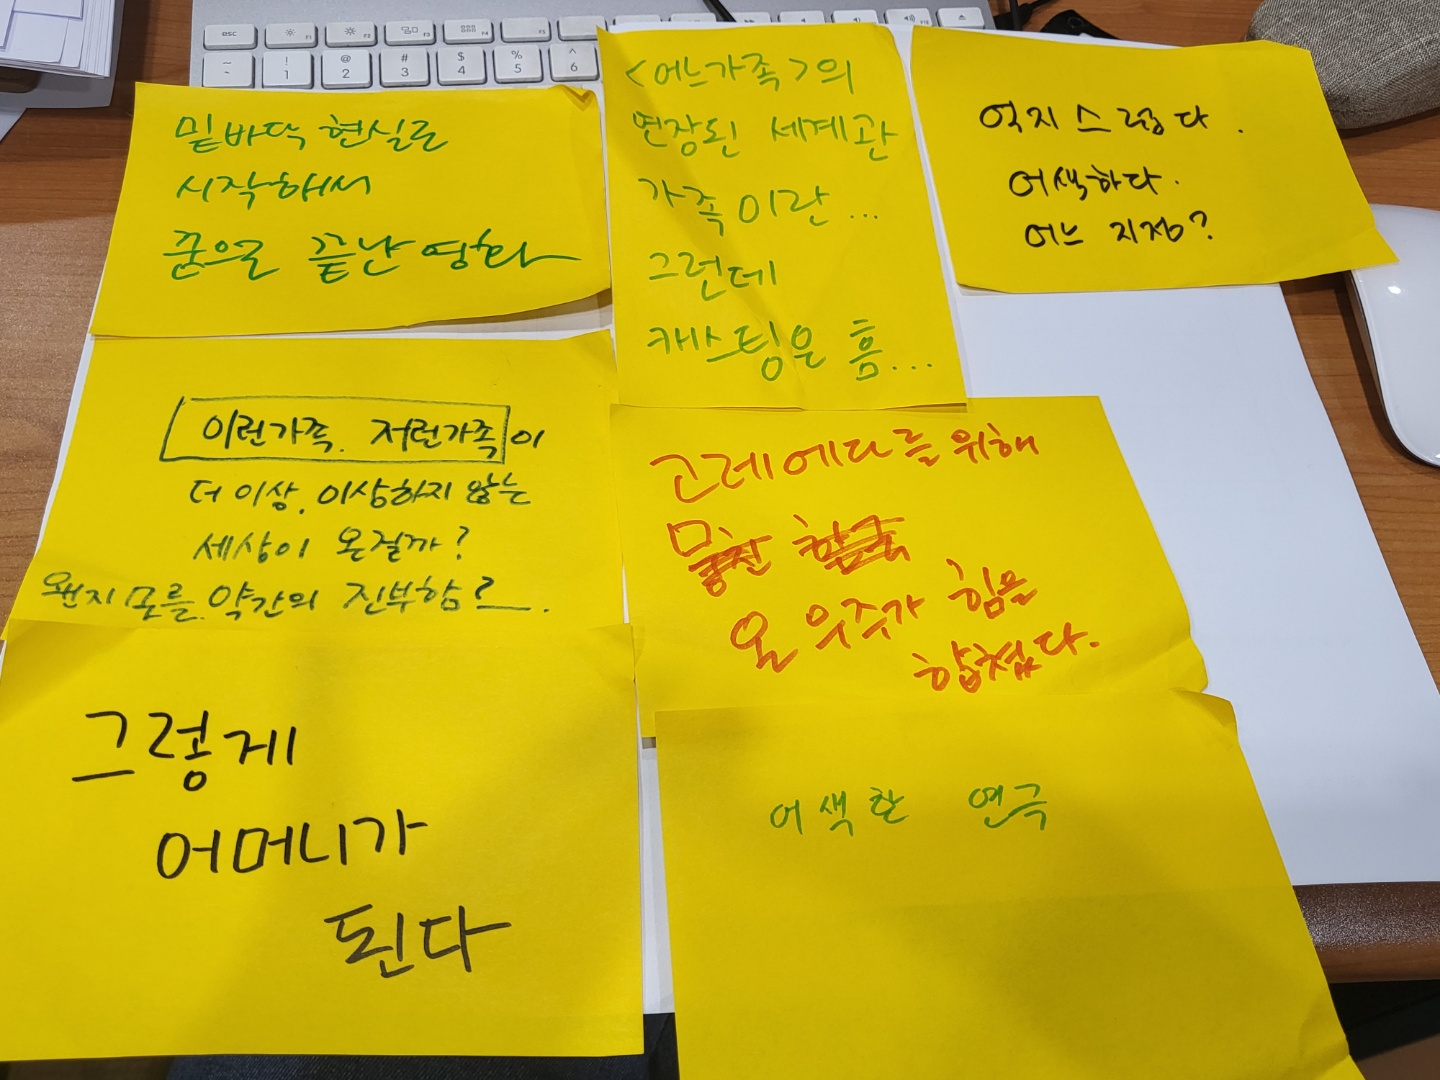 esc F1 F2 F3 F4 F5
~ ! @ # $ % ^
1 2 3 4 5 6
밑바닥 현실로
시작해서
꿈으로 끝난 영화
<어느가족>의
연장된 세계관
가족이란...
그런데
캐스팅은 흠...
억지스럽다.
어색하다.
어느 지점?
이런가족. 저런가족이
더 이상. 이상하지 않는
세상이 온걸까?
왠지모를 약간의 진부함
고레에다를 위해
온 우주가 힘을
합쳤다.
그렇게
어머니가
된다
어색한 연극